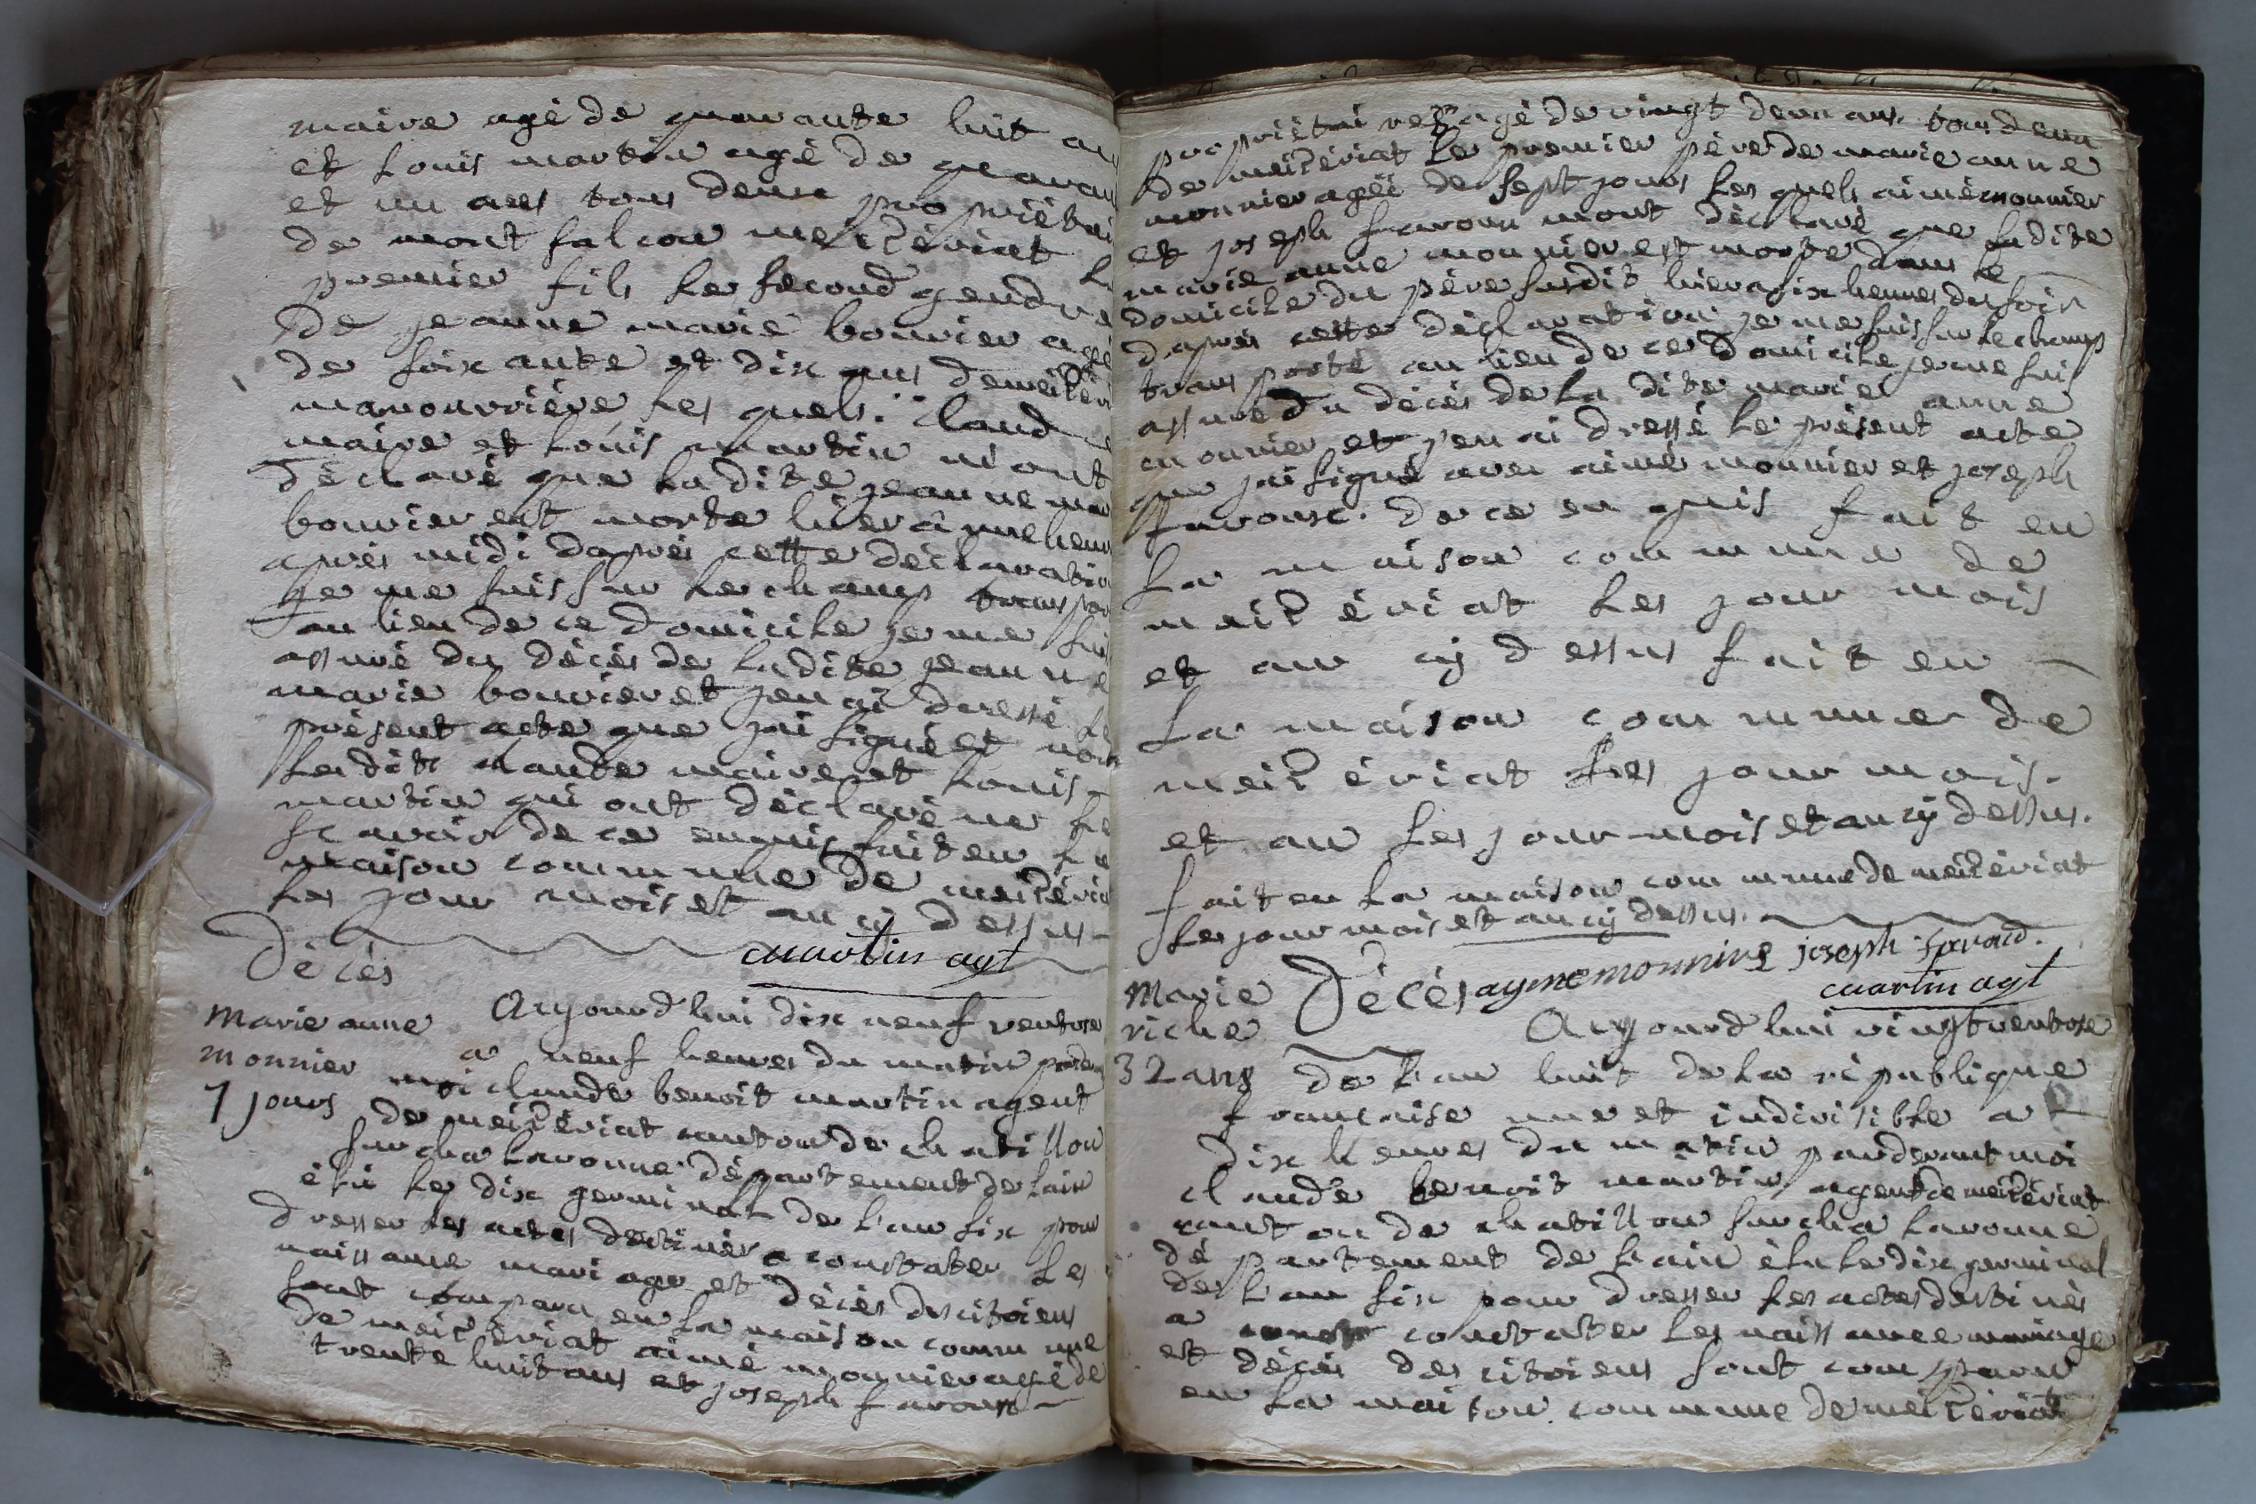 maire agé de quarante huit an
et Louis martin agé de quaran
et un ans tous deux propriétai
de mont falcon meizériat le
premier fils le second gendre
de jeanne marie bouvier agé
de soixante et dix ans demeizéri
manouvriére les quels claude
maire et Louis martin m'ont
déclaré que ladite jeanne mar
bouvier est morte hier à une heur
aprés midi daprés cette déclaratio
je me suis sur le champ transpor
au lieu de ce domicile je me suis
assuré du décés de ladite jeanne
marie bouvier et jen ai dressé le
présent acte que jai signé et non
lesdits claude maire et Louis
martin qui ont déclaré ne le
scavoir de ce enquis fait en la
maison commune de meizéria
les jour mois et an cy dessus
Décés martin agt
marie anne Aujourd'hui dix neuf ventose
monnier a neuf heures du matin pardeva
7 jours moi claude benoit martin agent
de meizériat canton de chatillon
sur cha laronne département de lain
élu le dix germinal de l'an six pour
dresser les actes destinés a constater les
naissance mariage et décés des citoiens
sont comparu en la maison commune
de meizériat aimé monnier agé de
trente huit ans et joseph favoux
propriétai res agé de vingt deux ans tous deux
de meizériat le premier pére de marie anne
monnier agéé de sept jours les quels aimé monnier
et joseph favoux mont déclaré que ladite
marie anne monnier est morte dans le
domicile du pére susdit hier a six heures du soir
daprés cette déclaration je me suis sur le champ
transporté au lieu de ce domicile je me suis
assuré du décés de la dite marie anne
monnier et j'en ai dressé le présent acte
que jai signé avec aimé monnier et joseph
favoux. de ce en quis fait en
la maison commune de
meizériat les jour mois
et an cy dessus fait en
La maison commune de
meizériat les jour mois
et an les jour mois et an cy dessus.
fait en la maison commune de meizériat
les jour mois et an cy dessus.
Décés ayme monnire joseph favoux.
marie martin agt
riche Aujourd'hui vingt ventose
32 ans de l'an huit de la république
francaise une et indivisible a
dix heures du matin pardevant moi
claude benoit martin agent de meizériat
canton de chatillon sur cha laronne
département de l'ain élu le dix germinal
de l'an six pour dresser les actes destinés
a constater les naissance mariage
et décés des citoiens sont comparu
en la maison commune de meizériat